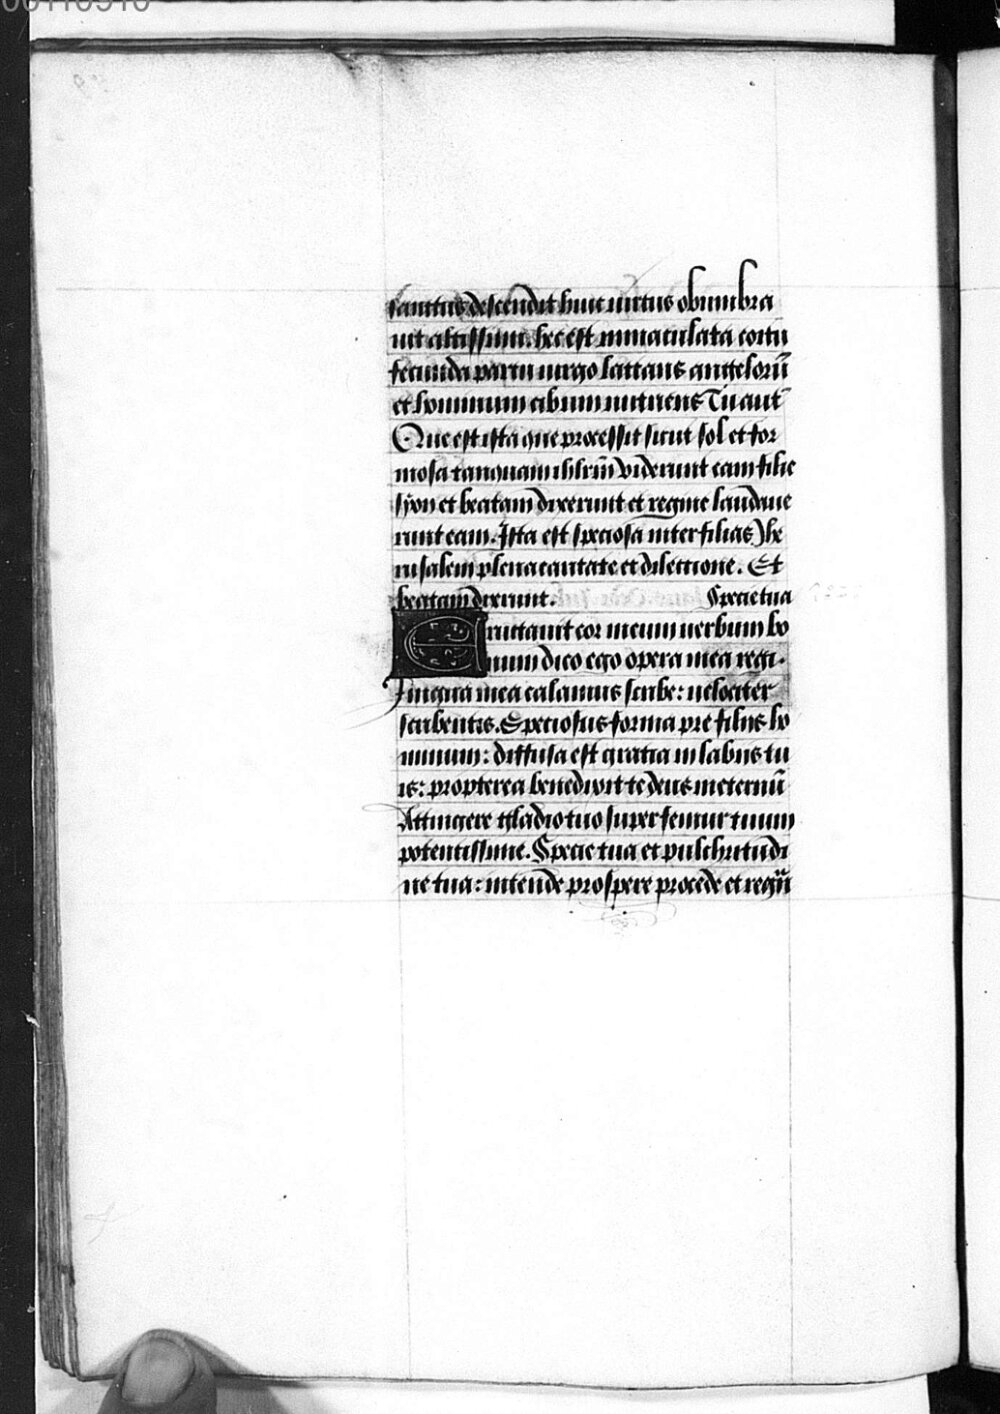 sanctus descendit huic uirtus obumbra
uit altissimi. hec est inmaculata coitu
fecunda partu uirgo lactans angelorū
et hominum cibum nutriens Tu aut̄
Que est ista que processit sicut sol et for
mosa tanquam ihlr̄m viderunt eam filie
syon et beatam dixerunt et regine laudaue
runt eam. Ista est speciosa inter filias Jhe
rusalem plena caritate et dilectione. Et
beatam dixerunt. Specie tua
Eructauit cor meum uerbum bo
num dico ego opera mea regi.
Lingua mea calamus scribe: uelociter
scribentis. Speciosus forma pre filiis ho
minum: diffusa est gratia in labiis tu
is: propterea benedixit te deus in eternū
Attingere gladio tuo super femur tuum
potentissime. Specie tua et pulchritudi
ne tua: intende prospere procede et regn̄